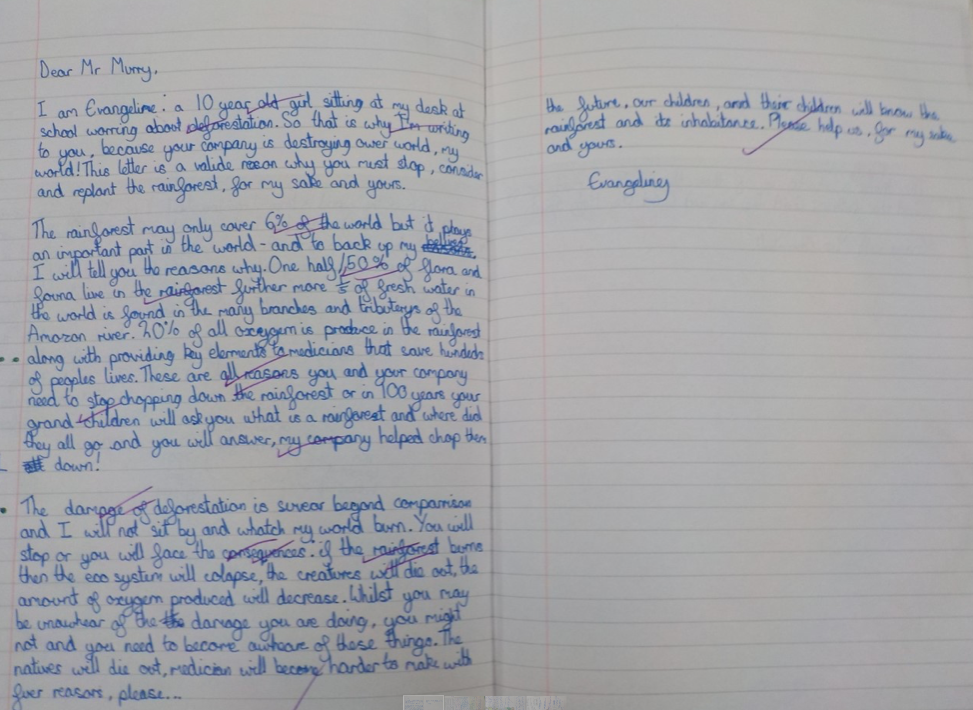 Dear Mr Murry,
I am Evangeline: a 10 year old girl sitting at my desk at
school worring about deforestation. So that is why I'm writing
to you, because your company is destroying ower world, my
world! This letter is a valide reson why you must stop, consider
and replant the rainforest, for my sake and yours.
The rainforest may only cover 6% of the world but it plays
an important part in the world - and to back up my
I will tell you the reasons why. One half/50% of flora and
founa live in the rainforest further more 1/5 of fresh water in
the world is found in the many branches and tributerys of the
Amazon river. 20% of all oxeygem is produce in the rainforest
along with providing key elements to medicians that save hundeds
of peoples lives. These are all reasons you and your company
need to stop chopping down the rainforest or in 100 years your
grand children will ask you what is a rainforest and where did
they all go and you will answer, my company helped chop them
down!
The damage of deforestation is surear beyond comparrison
and I will not sit by and whatch my world burn. You will
stop or you will face the consequences: if the rainforest burns
then the eco system will colapse, the creatures will die out, the
amount of oxeygem produced will decrease. Whilst you may
be unawhear of the damage you are doing, you might
not and you need to become awheare of these things. The
natives will die out, medician will become harder to make with
fuer reasors, please...
the future, our children, and their children will know the
rainforest and its inhabitance. Please help us, for my sake
and yours.
Evangeliney